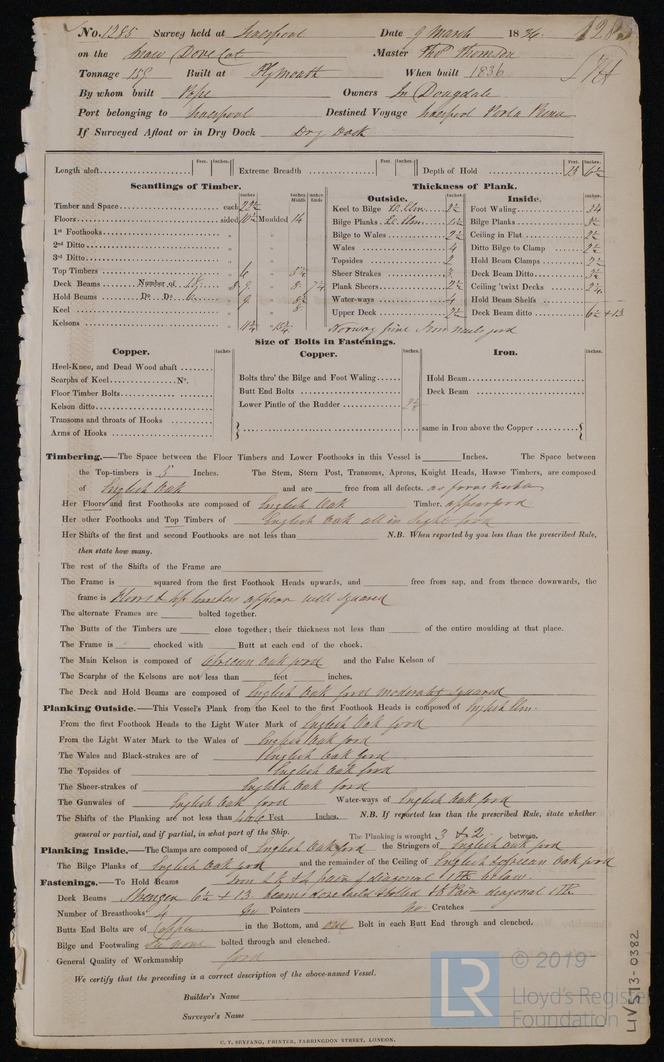 No. 1285 Survey held at Liverpool Date 9 March 1836 1285
on the Snow Dove Cot Master Thos Thomson
Tonnage 159 Built at Plymouth When built 1836
By whom built Pope Owners Jn Dougdale
Port belonging to Liverpool Destined Voyage Liverpool
If Surveyed Afloat or in Dry Dock Dry Dock
Feet. Inches. Feet. Inches. Feet. Inches.
Length aloft Extreme Breadth Depth of Hold
Scantlings of Timber. Thickness of Plank.
Inches Inches Middle Inches Ends Outside. Inches Inside. Inches.
Timber and Space each 22½ Keel to Bilge El. Elm Foot Waling
Floors sided Moulded 14 Bilge Planks El. Elm Bilge Planks
1st Foothooks " " Bilge to Wales 2½ Ceiling in Flat 2½
2nd Ditto " " Wales 4 Ditto Bilge to Clamp 2½
3rd Ditto " " Topsides 2 Hold Beam Clamps 2½
Top Timbers 6 Sheer Strakes 3 Deck Beam Ditto
Deck Beams Number of Plank Sheers 2½ Ceiling 'twixt Decks
Hold Beams Do. Do 6 9 Water-ways 4 Hold Beam Shelfs
Keel Upper Deck 2½ Deck Beam ditto 6½ + 13
Kelsons Norway pine Iron nails good
Size of Bolts in Fastenings.
Copper. Inches Copper. Inches. Iron. Inches
Heel-Knee, and Dead Wood abaft
Scarphs of Keel No. Bolts thro' the Bilge and Foot Waling Hold Beam
Floor Timber Bolts Butt End Bolts Deck Beam
Kelson ditto Lower Pintle of the Rudder
Transoms and throats of Hooks { same in Iron above the Copper {
Arms of Hooks
Timbering.—The Space between the Floor Timbers and Lower Foothooks in this Vessel is Inches. The Space between
the Top-timbers is 5 Inches. The Stem, Stern Post, Transoms, Aprons, Knight Heads, Hawse Timbers, are composed
of English Oak and are free from all defects. as far as
Her Floors and first Foothooks are composed of English Oak Timber. appear good
Her other Foothooks and Top Timbers of English Oak all in sight good
Her Shifts of the first and second Foothooks are not less than N.B. When reported by you less than the prescribed Rule,
then state how many.
The rest of the Shifts of the Frame are
The Frame is squared from the first Foothook Heads upwards, and free from sap, and from thence downwards, the
frame is Floors & top timbers appear well squared
The alternate Frames are bolted together.
The Butts of the Timbers are close together; their thickness not less than of the entire moulding at that place.
The Frame is chocked with Butt at each end of the chock.
The Main Kelson is composed of African Oak good and the False Kelson of
The Scarphs of the Kelsons are not less than feet inches.
The Deck and Hold Beams are composed of English Oak good moderately squared
Planking Outside.—This Vessel's Plank from the Keel to the first Foothook Heads is composed of English Elm.
From the first Foothook Heads to the Light Water Mark of English Oak good
From the Light Water Mark to the Wales of English Oak good
The Wales and Black-strakes are of English Oak good
The Topsides of English Oak good
The Sheer-strakes of English Oak good
The Gunwales of English Oak good Water-ways of English Oak good
The Shifts of the Planking are not less than Feet Inches. N.B. If reported less than the prescribed Rule, state whether
general or partial, and if partial, in what part of the Ship. The Planking is wrought 3 & 2 between.
Planking Inside.—The Clamps are composed of English Oak good the Stringers of English Oak good
The Bilge Planks of English Oak good and the remainder of the Ceiling of English & African Oak good
Fastenings.—To Hold Beams Iron pair of diagonal
Deck Beams Stringer 6½ + 13 beams & bolted pair diagonal
Number of Breasthooks 4 Pointers No Crutches
Butts End Bolts are of Copper in the Bottom, and one Bolt in each Butt End through and clenched.
Bilge and Footwaling none bolted through and clenched.
General Quality of Workmanship good
We certify that the preceding is a correct description of the above-named Vessel.
Builder's Name
Surveyor's Name
C. F. SEYFANG, PRINTER, FARRINGDON STREET, LONDON.
LR © 2019
Lloyd's Register
Foundation
LIV 513-0382